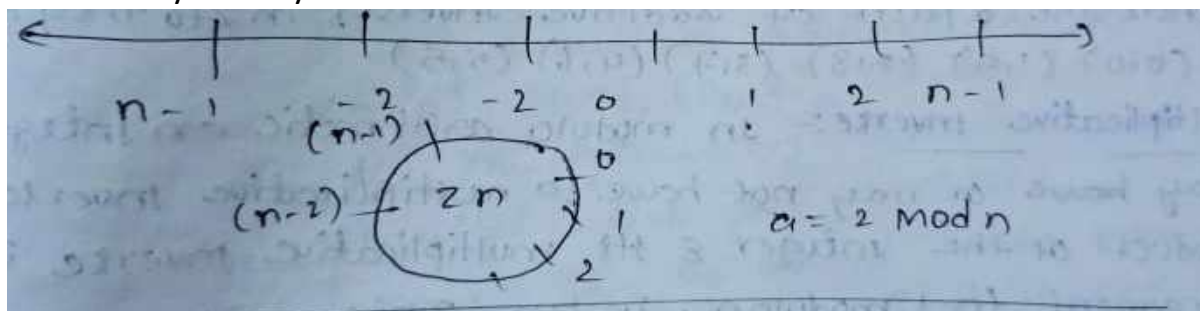 n-1 -2 -2 0 1 2 n-1
(n-1) 0
(n-2) Zn 1 a = 2 mod n
2